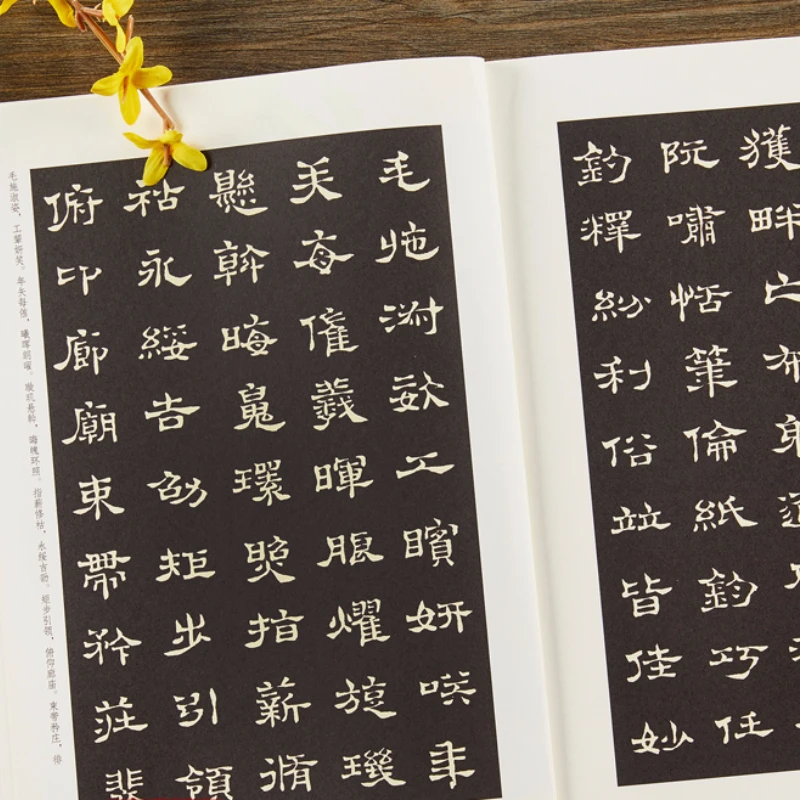 獲畔亡布射遼
阮嘯恬筆倫紙鈞巧任
釣釋紛利俗竝皆佳妙
毛施淑姿工矉妍咲年
矢每催羲暉朗曜旋璣
懸斡晦魄環照指薪脩
祜永綏吉劭矩步引領
俯卬廊廟束帶矜莊裴
毛施淑姿，工颦妍笑。年矢每催，曦晖朗曜。璇玑悬斡，晦魄环照。指薪修祜，永绥吉劭。矩步引领，俯仰廊庙。束带矜庄，徘